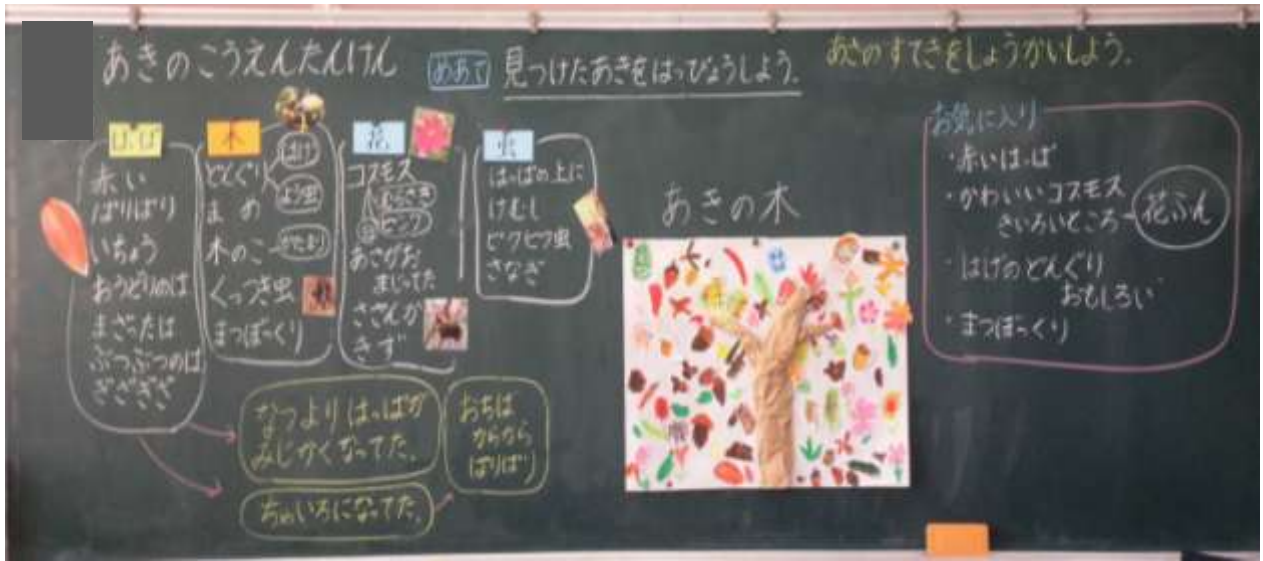 あきのこうえんたんけん
めあて 見つけたあきをはっぴょうしよう。
あきのすてきをしょうかいしよう。
はっぱ
赤い
ぱりぱり
いちょう
まざったは
ぶつぶつのは
ぎざぎざ
木
どんぐり
はげ
よう虫
まめ
木のこ
かたまり
くっつき虫
まつぼっくり
花
コスモス
むらさき
白
ピンク
あさがお
まじってた
さざんか
きず
虫
はっぱの上に
けむし
ピクピク虫
さなぎ
なつよりはっぱが
みじかくなってた。
ちゃいろになってた。
おちば
からから
ぱりぱり
あきの木
お気に入り
・赤いはっぱ
・かわいいコスモス
きいろいところ
花ふん
・はげのどんぐり
おもしろい
・まつぼっくり